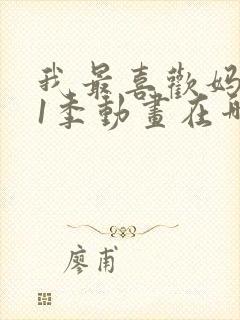 我最喜歡媽
1季動畫在哪
廖甫